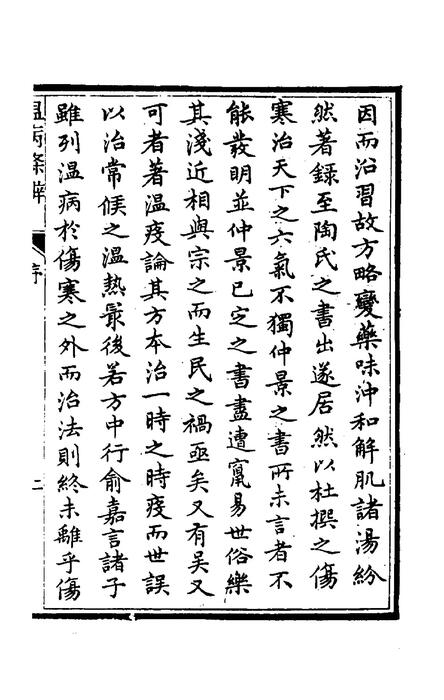 因而沿習故方略變藥味沖和解肌諸湯紛
然著錄至陶氏之書出遂居然以杜撰之傷
寒治天下之六氣不獨仲景之書所未言者不
能發明並仲景已定之書盡遭竄易世俗樂
其淺近相與宗之而生民之禍亟矣又有吳又
可者著溫疫論其方本治一時之時疫而世誤
以治常候之溫熱最後若方中行俞嘉言諸子
雖列溫病於傷寒之外而治法則終未離乎傷
溫病條辨
序
二